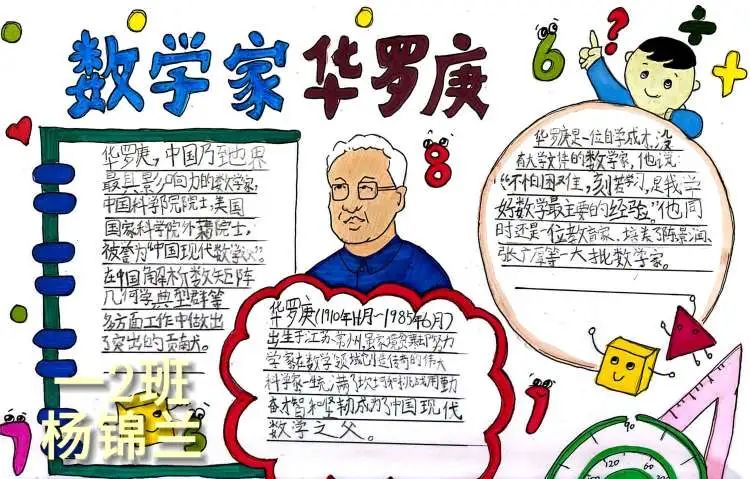 数学家华罗庚
华罗庚，中国乃至世界
最具影响力的数学家，
中国科学院院士，美国
国家科学院外籍院士。
被誉为“中国现代数学
在中国解析数矩阵
几何学典型群等
多方面工作中做出
了突出的贡献。
一2班
杨锦兰
华罗庚(1910年11月～1985年6月)
出生于江苏常州,虽家境贫寒却努力
学家在数学领域创造传奇的伟大
科学家一生满了坎坷和挑战用勤
奋才智和坚韧成为了中国现代
数学之父。
华罗庚是一位自学成才,没
有大学文凭的数学家，他说：
“不怕困难，刻苦学习，是我学
好数学最主要的经验”他同
时还是一位教育家，培养了陈景润、
张广厚等一大批数学家。
6
?
÷
+
8
7
1
90
120
60